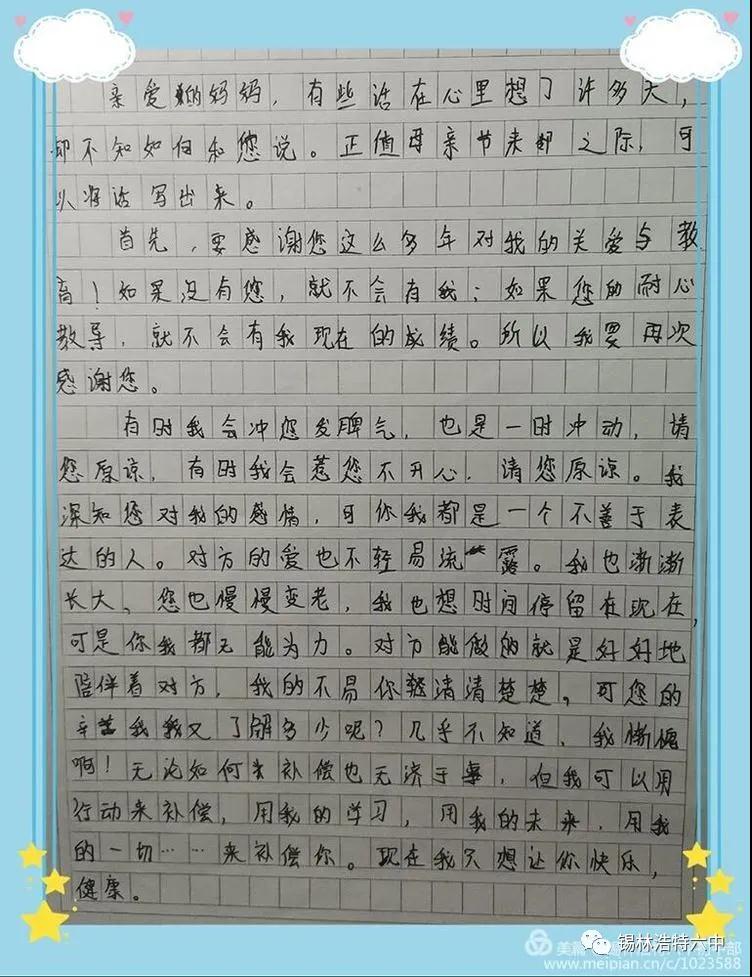 亲爱的妈妈，有些话在心里想了许多天，
却不知如何和您说。正值母亲节来即之际，可
以将话写出来。
首先，要感谢您这么多年对我的关爱与教
育！如果没有您，就不会有我；如果您的耐心
教导，就不会有我现在的成绩。所以我要再次
感谢您。
有时我会冲您发脾气，也是一时冲动，请
您原谅，有时我会惹您不开心，请您原谅。我
深知您对我的感情，可你我都是一个不善于表
达的人。对方的爱也不轻易流露。我也渐渐
长大，您也慢慢变老，我也想时间停留在现在，
可是你我都无能为力。对方能做的就是好好地
陪伴着对方，我的不易你清清楚楚，可您的
辛苦我又了解多少呢？几乎不知道，我惭愧
啊！无论如何去补偿也无济于事，但我可以用
行动来补偿，用我的学习，用我的未来，用我
的一切……来补偿你。现在我只想让你快乐，
健康。
锡林浩特六中
www.meipian.cn/c/1023588